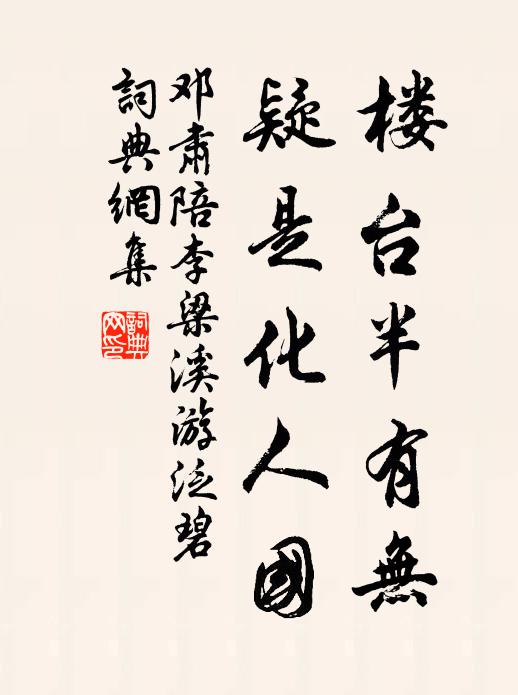 楼台半有無
疑是化人國
邓肃陪李梁溪游泛碧
詞典網集
詞典
网印